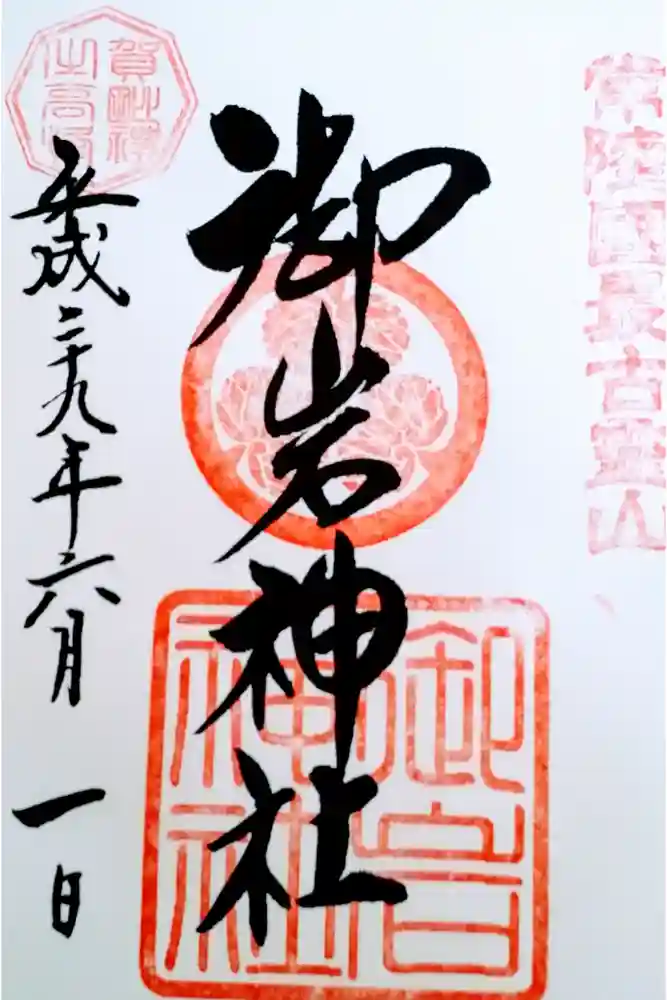 常陸國最古霊山
御岩神社
御岩神社
平成二十九年六月一日